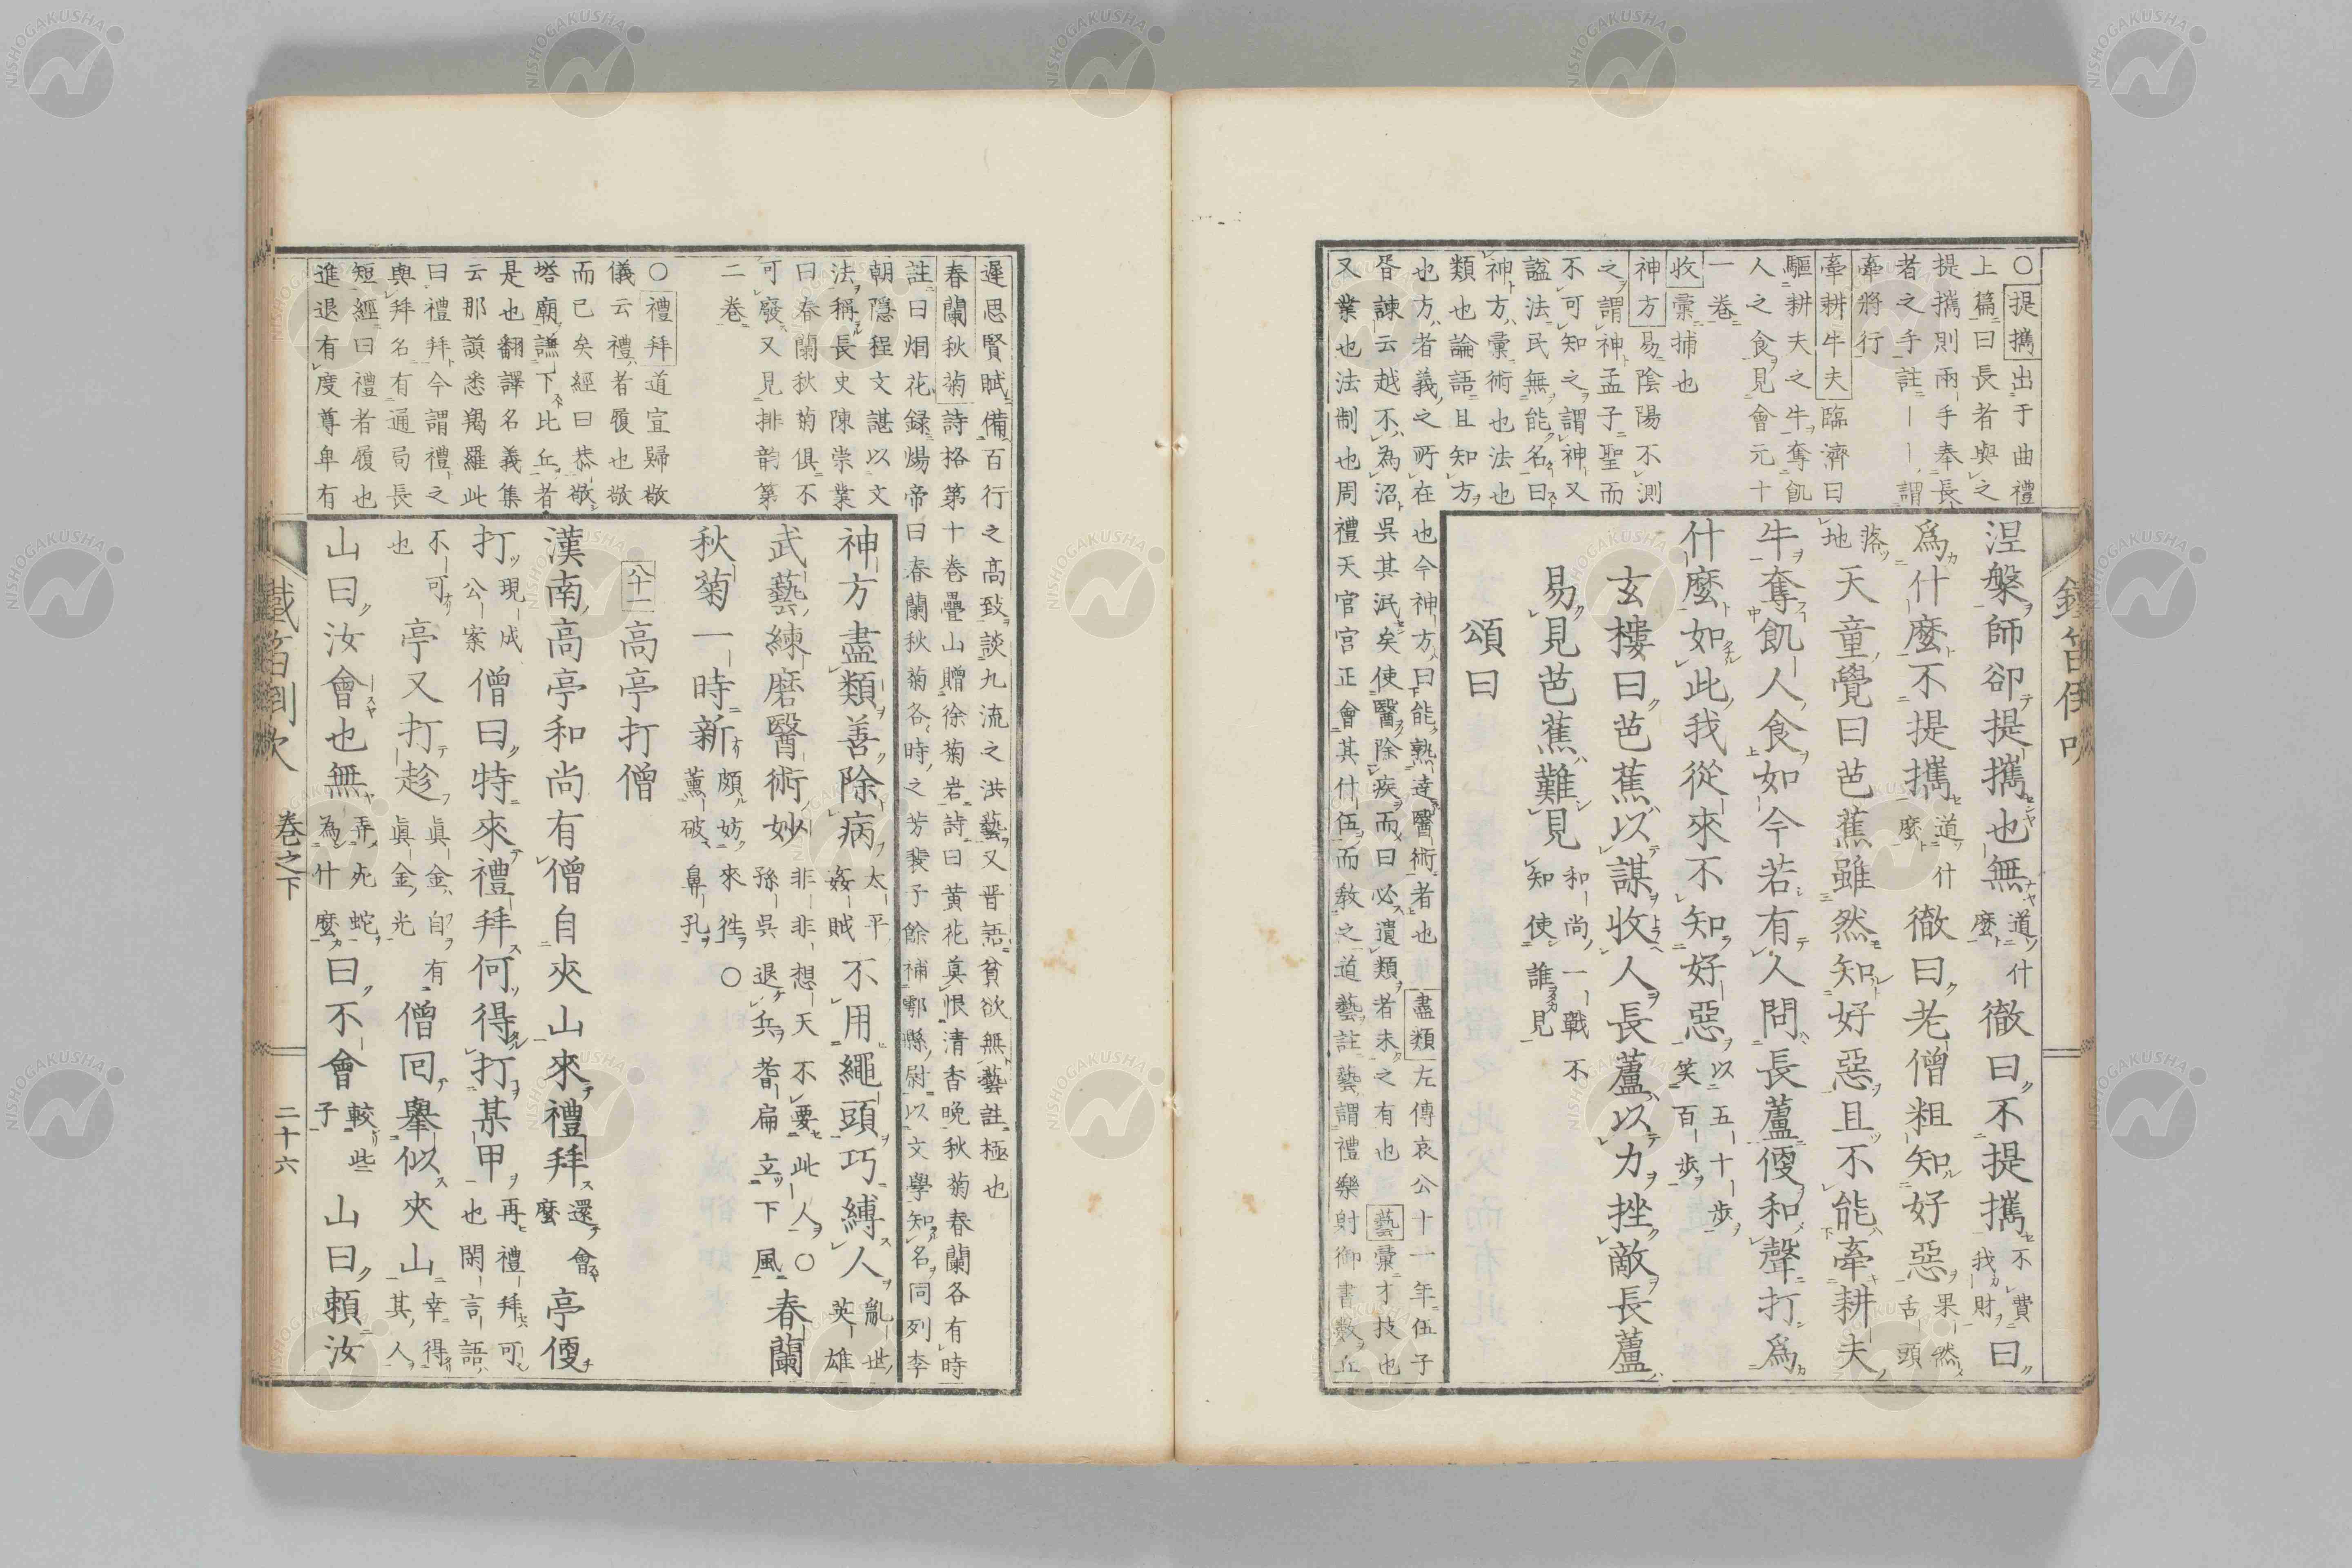 ○提攜出于曲禮
上篇曰長者與之
提攜則兩手奉長
者之手註――謂
牽將行
牽耕牛夫臨濟曰
驅耕夫之牛奪飢
人之食見會元十
一卷
收彙捕也
神方易陰陽不測
之謂神孟子聖而
不可知之謂神又
諡法民無能名曰
神方彙術也法也
類也論語且知方
也方者義之所在也今神方曰能熟達醫術者也 盡類左傳哀公十一年伍子
胥諫云越不為沼吳其泯矣使醫除疾而曰必遺類者未之有也 藝彙才技也
又業也法制也周禮天官宮正會其什伍而教之道藝註藝謂禮樂射御書數丘
涅槃師卻提攜也無道什麼徹曰不提攜不費我財曰
爲什麼不提攜道什麼徹曰老僧粗知好惡果然舌頭
落地天童覺曰芭蕉雖然知好惡且不能牽耕夫
牛奪飢人食如今若有人問長蘆便和聲打爲
什麼如此我從來不知好惡以五十步笑百步
玄樓曰芭蕉以謀收人長蘆以力挫敵長蘆
易見芭蕉難見和尚一戰不知使誰見
頌曰
遲思賢賦備百行之高致談九流之洪藝又晉語貪欲無藝註極也
春蘭秋菊詩格第十卷疊山贈徐菊岩詩曰黃花莫恨清香晚秋菊春蘭各有時
註曰烟花録煬帝曰春蘭秋菊各時之芳裴子餘補鄠縣尉以文學知名同列李
朝隱程文諶以文
法稱長史陳崇業
曰春蘭秋菊俱不
可廢又見排韵第
二卷
○禮拜道宣歸敬
儀云禮者履也敬
而已矣經曰恭敬
塔廟謙下比丘者
是也翻譯名義集
云那謨悉羯羅此
曰禮拜今謂禮之
與拜名有通局長
短經曰禮者履也
進退有度尊卑有
神方盡類善除病太平姦賊不用繩頭巧縛人亂世英雄
武藝練磨醫術妙非非想天不要此人○孫吳退兵耆扁立下風春蘭
秋菊一時新頗妨來徃○薰破鼻孔
八十一高亭打僧
漢南高亭和尚有僧自夾山來禮拜還會麼亭便
打現成公案僧曰特來禮拜何得打某甲再禮拜可也閑言語
不可也亭又打趁眞金自有眞金光僧回舉似夾山幸得其人
山曰汝會也無弄死蛇為什麼曰不會較些子山曰賴汝
鐵笛倒吹 卷之下 二十六